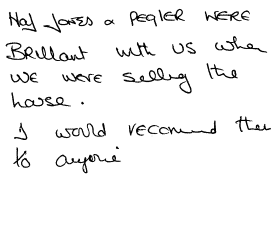 Hay Jones & PEGLER WERE
BRillant with US when
we were selling the
house.
I would recomend them
to anyone